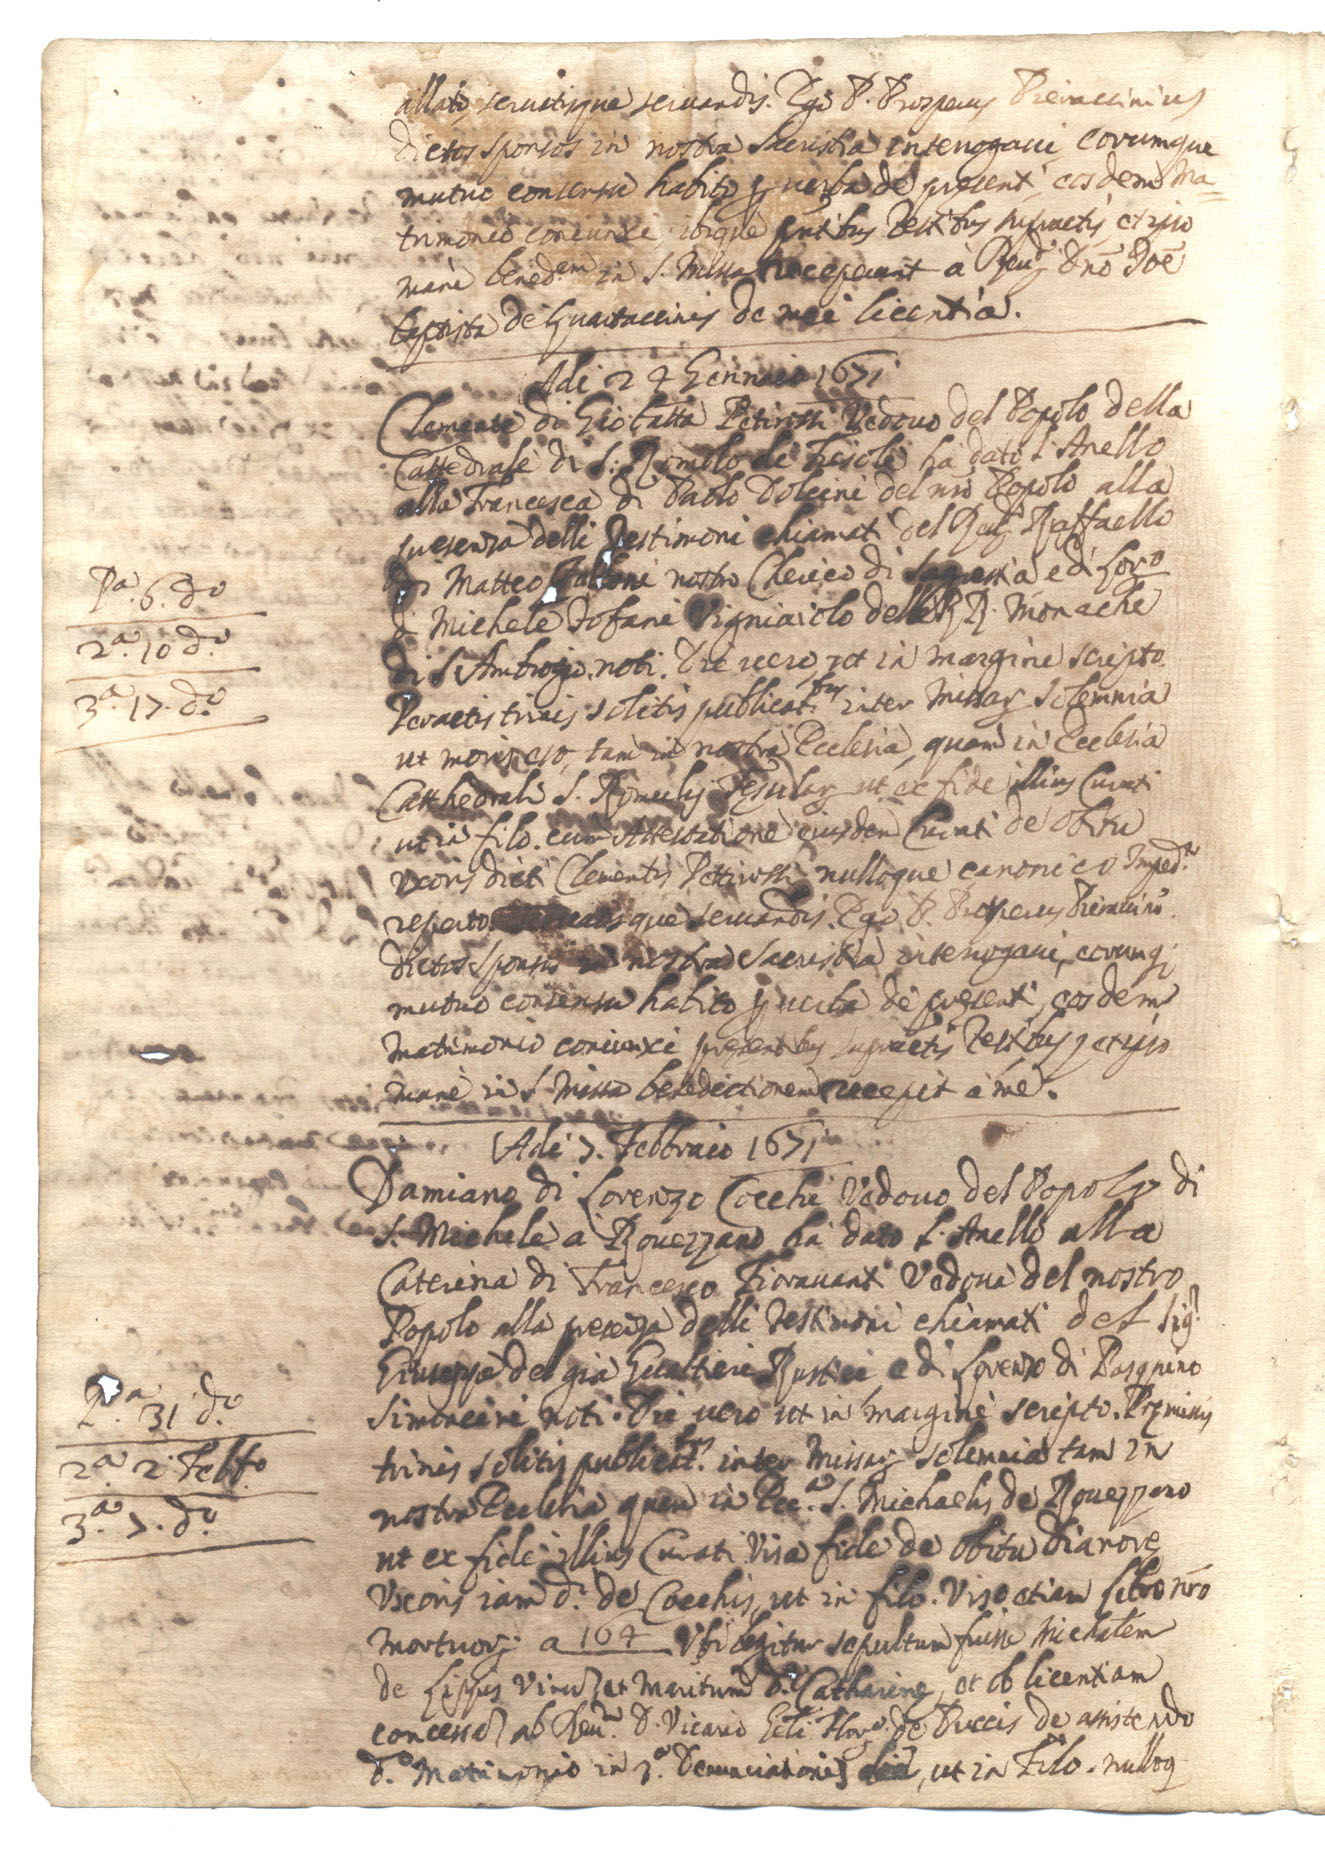 allatis seruatisque seruandis. Ego P. Prosperus Pieraccinius
dictos sponsos in nostra Sacristia interrogaui, eorumque
mutuo consensu habito p uerba de presenti, eosdem Ma=
trimonio coniunxi, ibique pntibus Testibus supractis, et ipso
mane bened.em in S. Missa receperunt à Reud. Dno Joe
baptista de Guartaccinis de mei licentia.
Adi 24 Gennaio 1671
Clemente di Gio batta Petirossi Vedouo del Popolo della
Cattedrale di S. Romolo di Fiesole ha dato l'Anello
alla Francesca di Paolo Dolcini del nro Popolo alla
presenza delli Testimoni chiamati del Red. Raffaello
di Matteo Falloni nostro Cherico di Sagrestia e di Lor.o
di Michele Tofani Vigniaiolo delle RR. Monache
di S. Ambrogio noti. Die uero, ut in margine scripto.
Peractis trinis solitis publicat.bus inter Missar. solemnia
ut moris est, tam in nostra Ecclesia, quam in Ecclesia
Cathedrali S. Romuli Fesular. ut ex fide illius Curati
ut in filo. cum Attestatione eiusdem Curati de obitu
Vxoris dicti Clementis Pettirossi nulloque canonico Imped.to
reperto. seruatisque seruandis. Ego P. Prosperus Pieraccinis
dictos Sponsos in nostra Sacristia interrogaui, eorumq;
mutuo consensu habito p uerba de presenti, eosdem
matrimonio coniunxi presentibus supractis Testibus, et ipso
mane in S. Missa benedictionem recepit a me.
Adi 7. Febbraio 1671
Damiano di Lorenzo Cocchi Vedouo del Popolo di
S. Michele a Rouezzano ha dato l'Anello alla
Caterina di Francesco Fiorauanti Vedoua del nostro
Popolo alla presenza delli Testimoni chiamati del Sig.r
Giuseppe del già Gualtieri Rustici e di Lorenzo di Pasquino
Simoncini noti. Die uero ut in margine scripto. Premissis
trinis solitis publicat.bus inter Missar. solemnia tam in
nostra Ecclesia, quam in Ecc.a S. Michaelis de Rouezzano
ut ex fide illius Curati Visa fide de obitu Dianore
Vxoris iam d.i de Cocchis, ut in filo. Viso etiam libro nro
mortuor. a 164 Vbi legitur sepultum fuisse Michalem
de Lippis Virum et Maritum d. Catharine, et ob licentiam
concessa ab Reu.mo D. Vicario de Puccis de assistendo
d.o Matrimonio in 3.a Denunciationis die, ut in Filo. nulloq
P.a 6. d.o
2.a 10 d.o
3.a 17. d.o
P.a 31 d.o
2.a 2 Febb.o
3.a 7. d.o